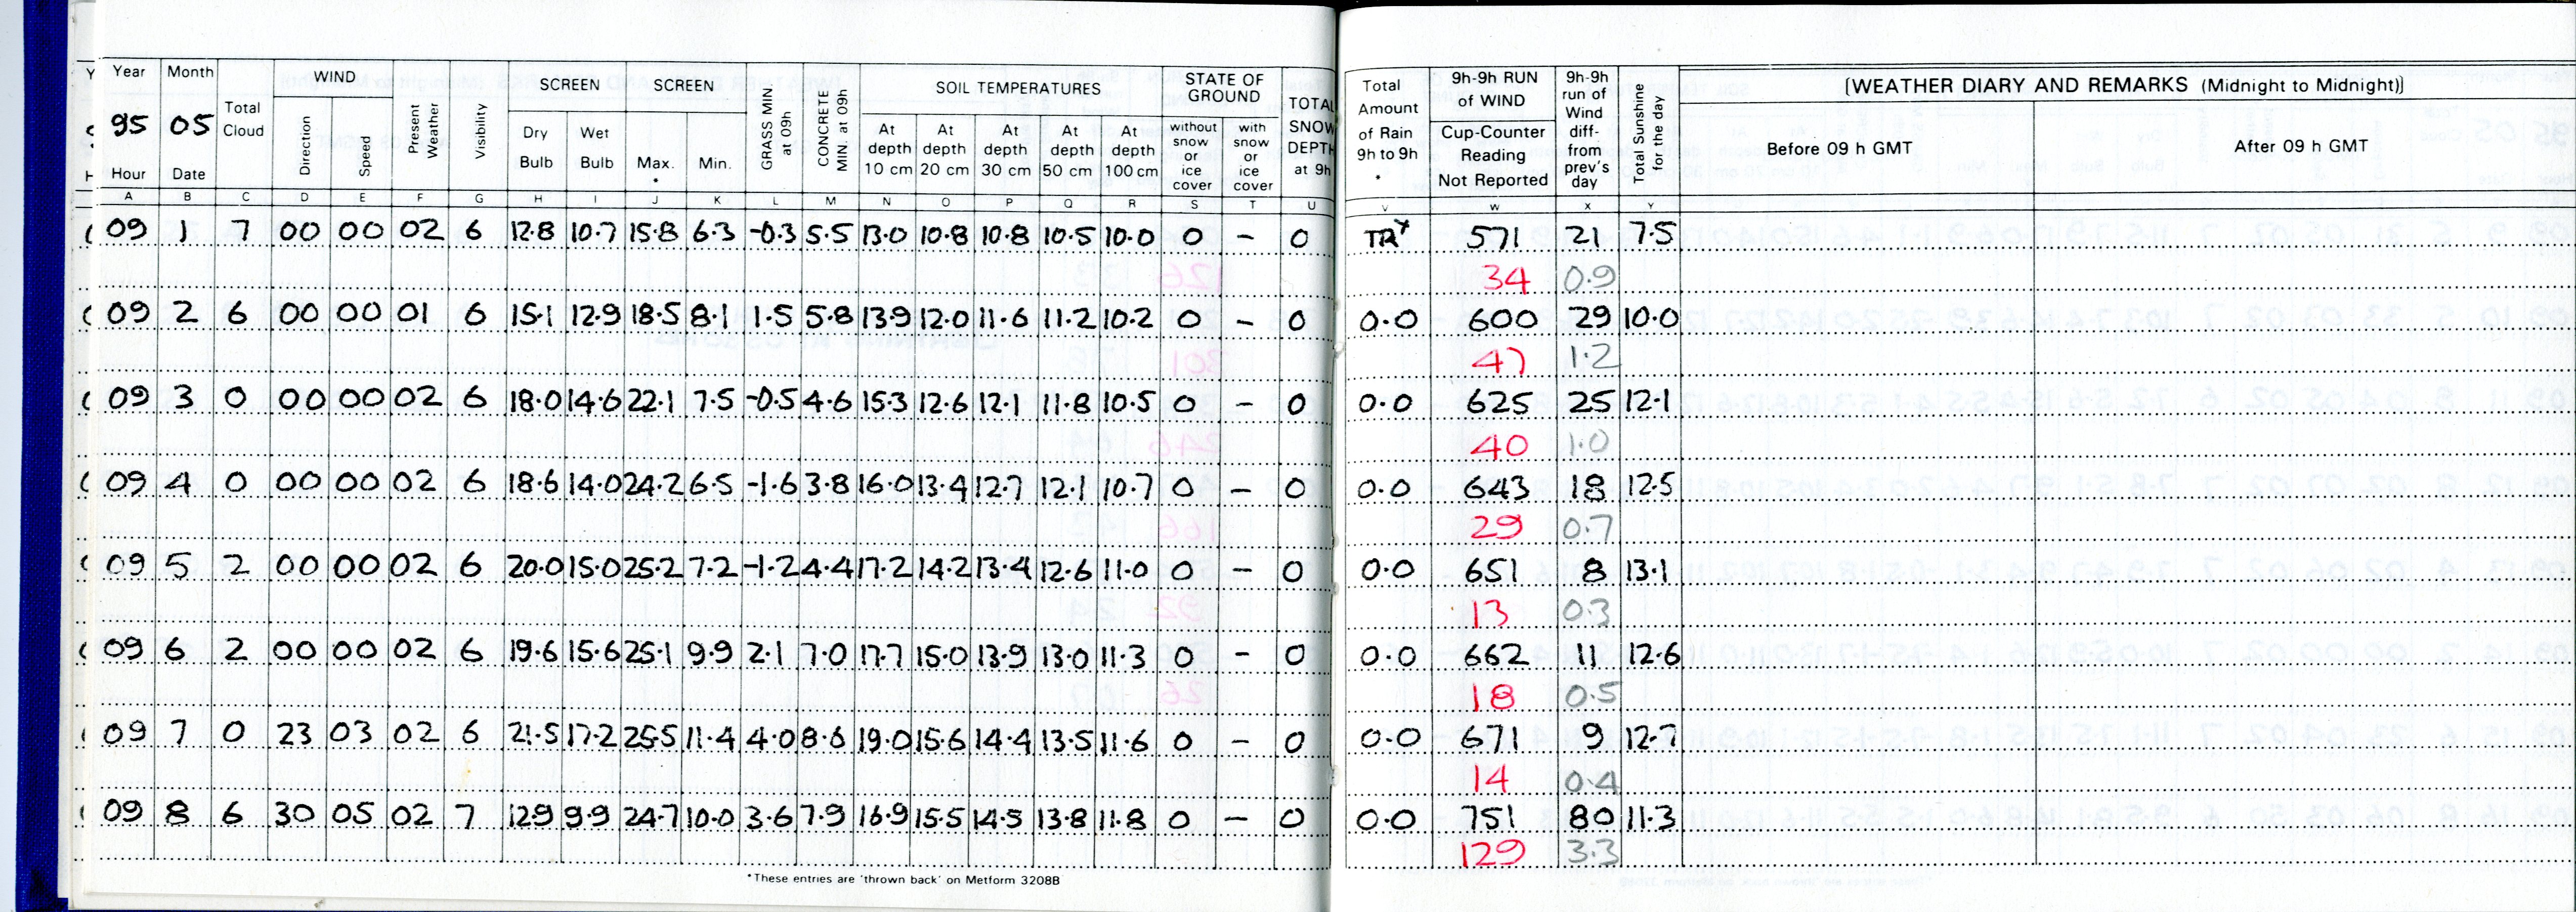 Year Month Total Cloud WIND Present Weather Visibility SCREEN SCREEN GRASS MIN. at 09h CONCRETE MIN. at 09h SOIL TEMPERATURES STATE OF GROUND TOTAL SNOW DEPTH at 9h Total Amount of Rain 9h to 9h * 9h-9h RUN of WIND 9h-9h run of Wind diff- from prev's day Total Sunshine for the day [WEATHER DIARY AND REMARKS (Midnight to Midnight)]
95 05 Direction Speed Dry Bulb Wet Bulb Max. * Min. At depth 10 cm At depth 20 cm At depth 30 cm At depth 50 cm At depth 100 cm without snow or ice cover with snow or ice cover Cup-Counter Reading Not Reported Before 09 h GMT After 09 h GMT
Hour Date
A B C D E F G H I J K L M N O P Q R S T U V W X Y
09 1 7 00 00 02 6 12.8 10.7 15.8 6.3 -0.3 5.5 13.0 10.8 10.8 10.5 10.0 0 - 0 TR 571 21 7.5
34 0.9
09 2 6 00 00 01 6 15.1 12.9 18.5 8.1 1.5 5.8 13.9 12.0 11.6 11.2 10.2 0 - 0 0.0 600 29 10.0
47 1.2
09 3 0 00 00 02 6 18.0 14.6 22.1 7.5 -0.5 4.6 15.3 12.6 12.1 11.8 10.5 0 - 0 0.0 625 25 12.1
40 1.0
09 4 0 00 00 02 6 18.6 14.0 24.2 6.5 -1.6 3.8 16.0 13.4 12.7 12.1 10.7 0 - 0 0.0 643 18 12.5
29 0.7
09 5 2 00 00 02 6 20.0 15.0 25.2 7.2 -1.2 4.4 17.2 14.2 13.4 12.6 11.0 0 - 0 0.0 651 8 13.1
13 0.3
09 6 2 00 00 02 6 19.6 15.6 25.1 9.9 2.1 7.0 17.7 15.0 13.9 13.0 11.3 0 - 0 0.0 662 11 12.6
18 0.5
09 7 0 23 03 02 6 21.5 17.2 25.5 11.4 4.0 8.6 19.0 15.6 14.4 13.5 11.6 0 - 0 0.0 671 9 12.7
14 0.4
09 8 6 30 05 02 7 12.9 9.9 24.7 10.0 3.6 7.9 16.9 15.5 14.5 13.8 11.8 0 - 0 0.0 751 80 11.3
129 3.3
*These entries are 'thrown back' on Metform 3208B